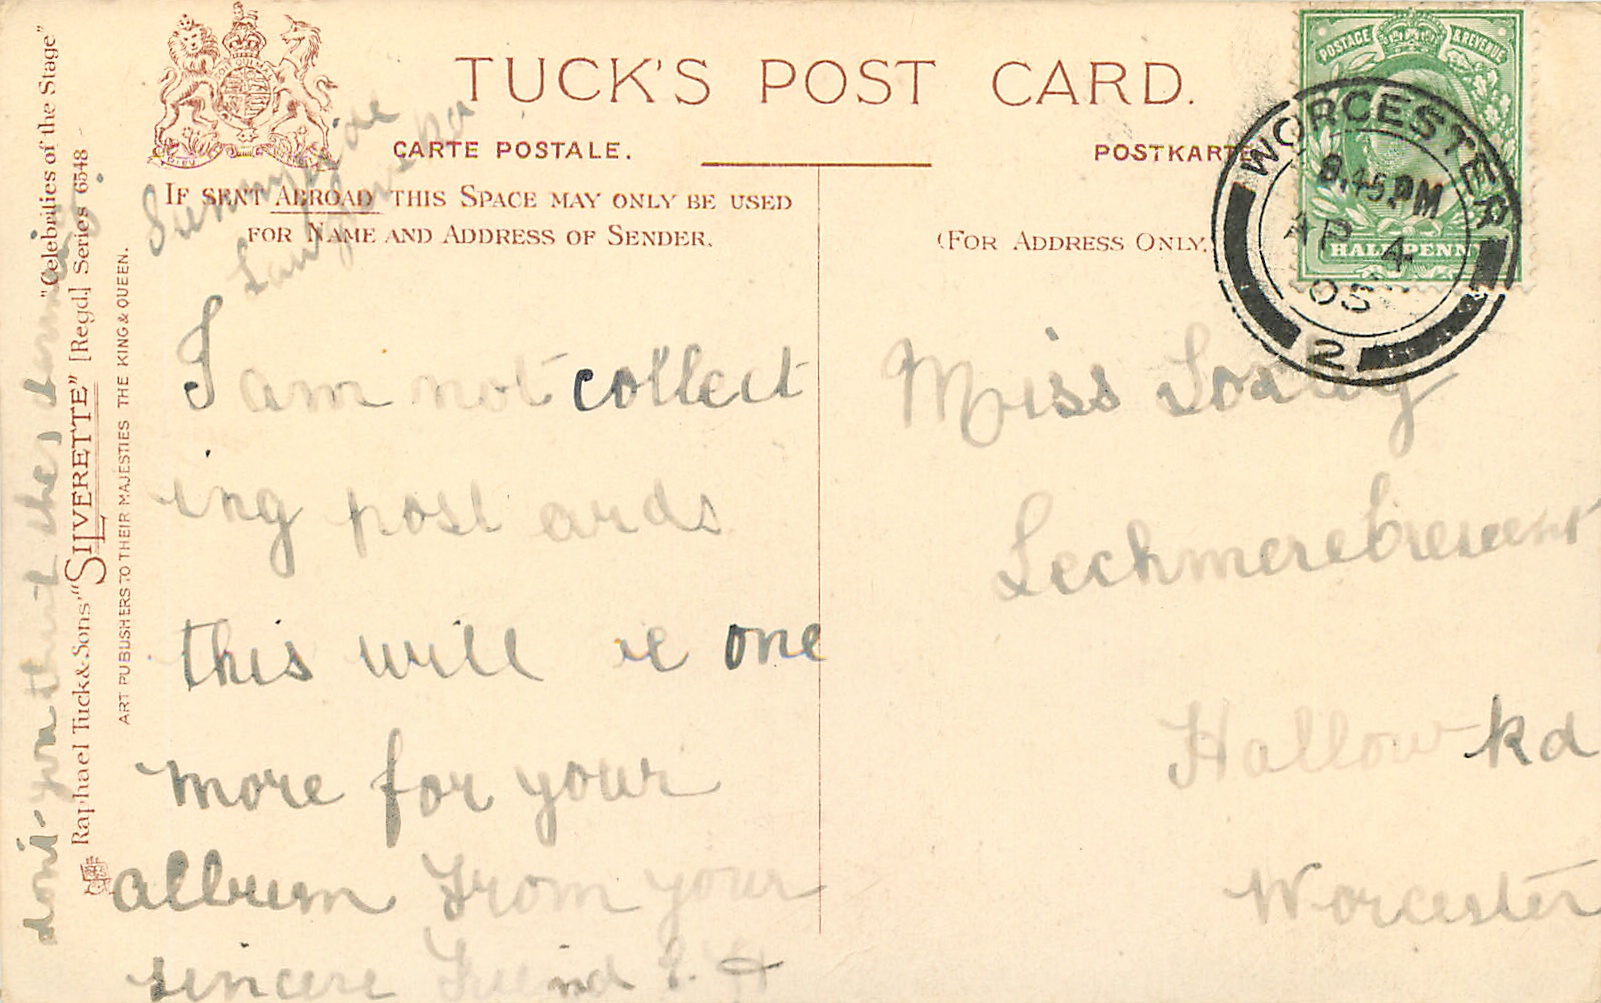 TUCK'S POST CARD.
CARTE POSTALE.
POSTKARTE
IF SENT ABROAD THIS SPACE MAY ONLY BE USED
FOR NAME AND ADDRESS OF SENDER.
(FOR ADDRESS ONLY.
POSTAGE & REVENUE
HALFPENNY
WORCESTER
8.45 PM
AP 4
05
2
Sunnyside
I am not collect
ing post ards
this will be one
more for your
album From your
sincere Friend E. H
Miss
Lechmere Crescent
Hallow Rd
Worcester
don't you think she's charming.
"Celebrities of the Stage"
Raphael Tuck & Sons' "SILVERETTE" [Regd.] Series 6548
ART PUBLISHERS TO THEIR MAJESTIES THE KING & QUEEN.